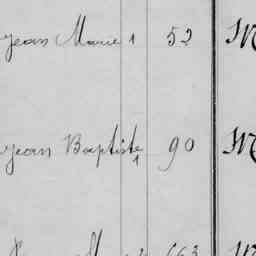 Jean Marie 1 52 M
Jean Baptiste 1 90 M